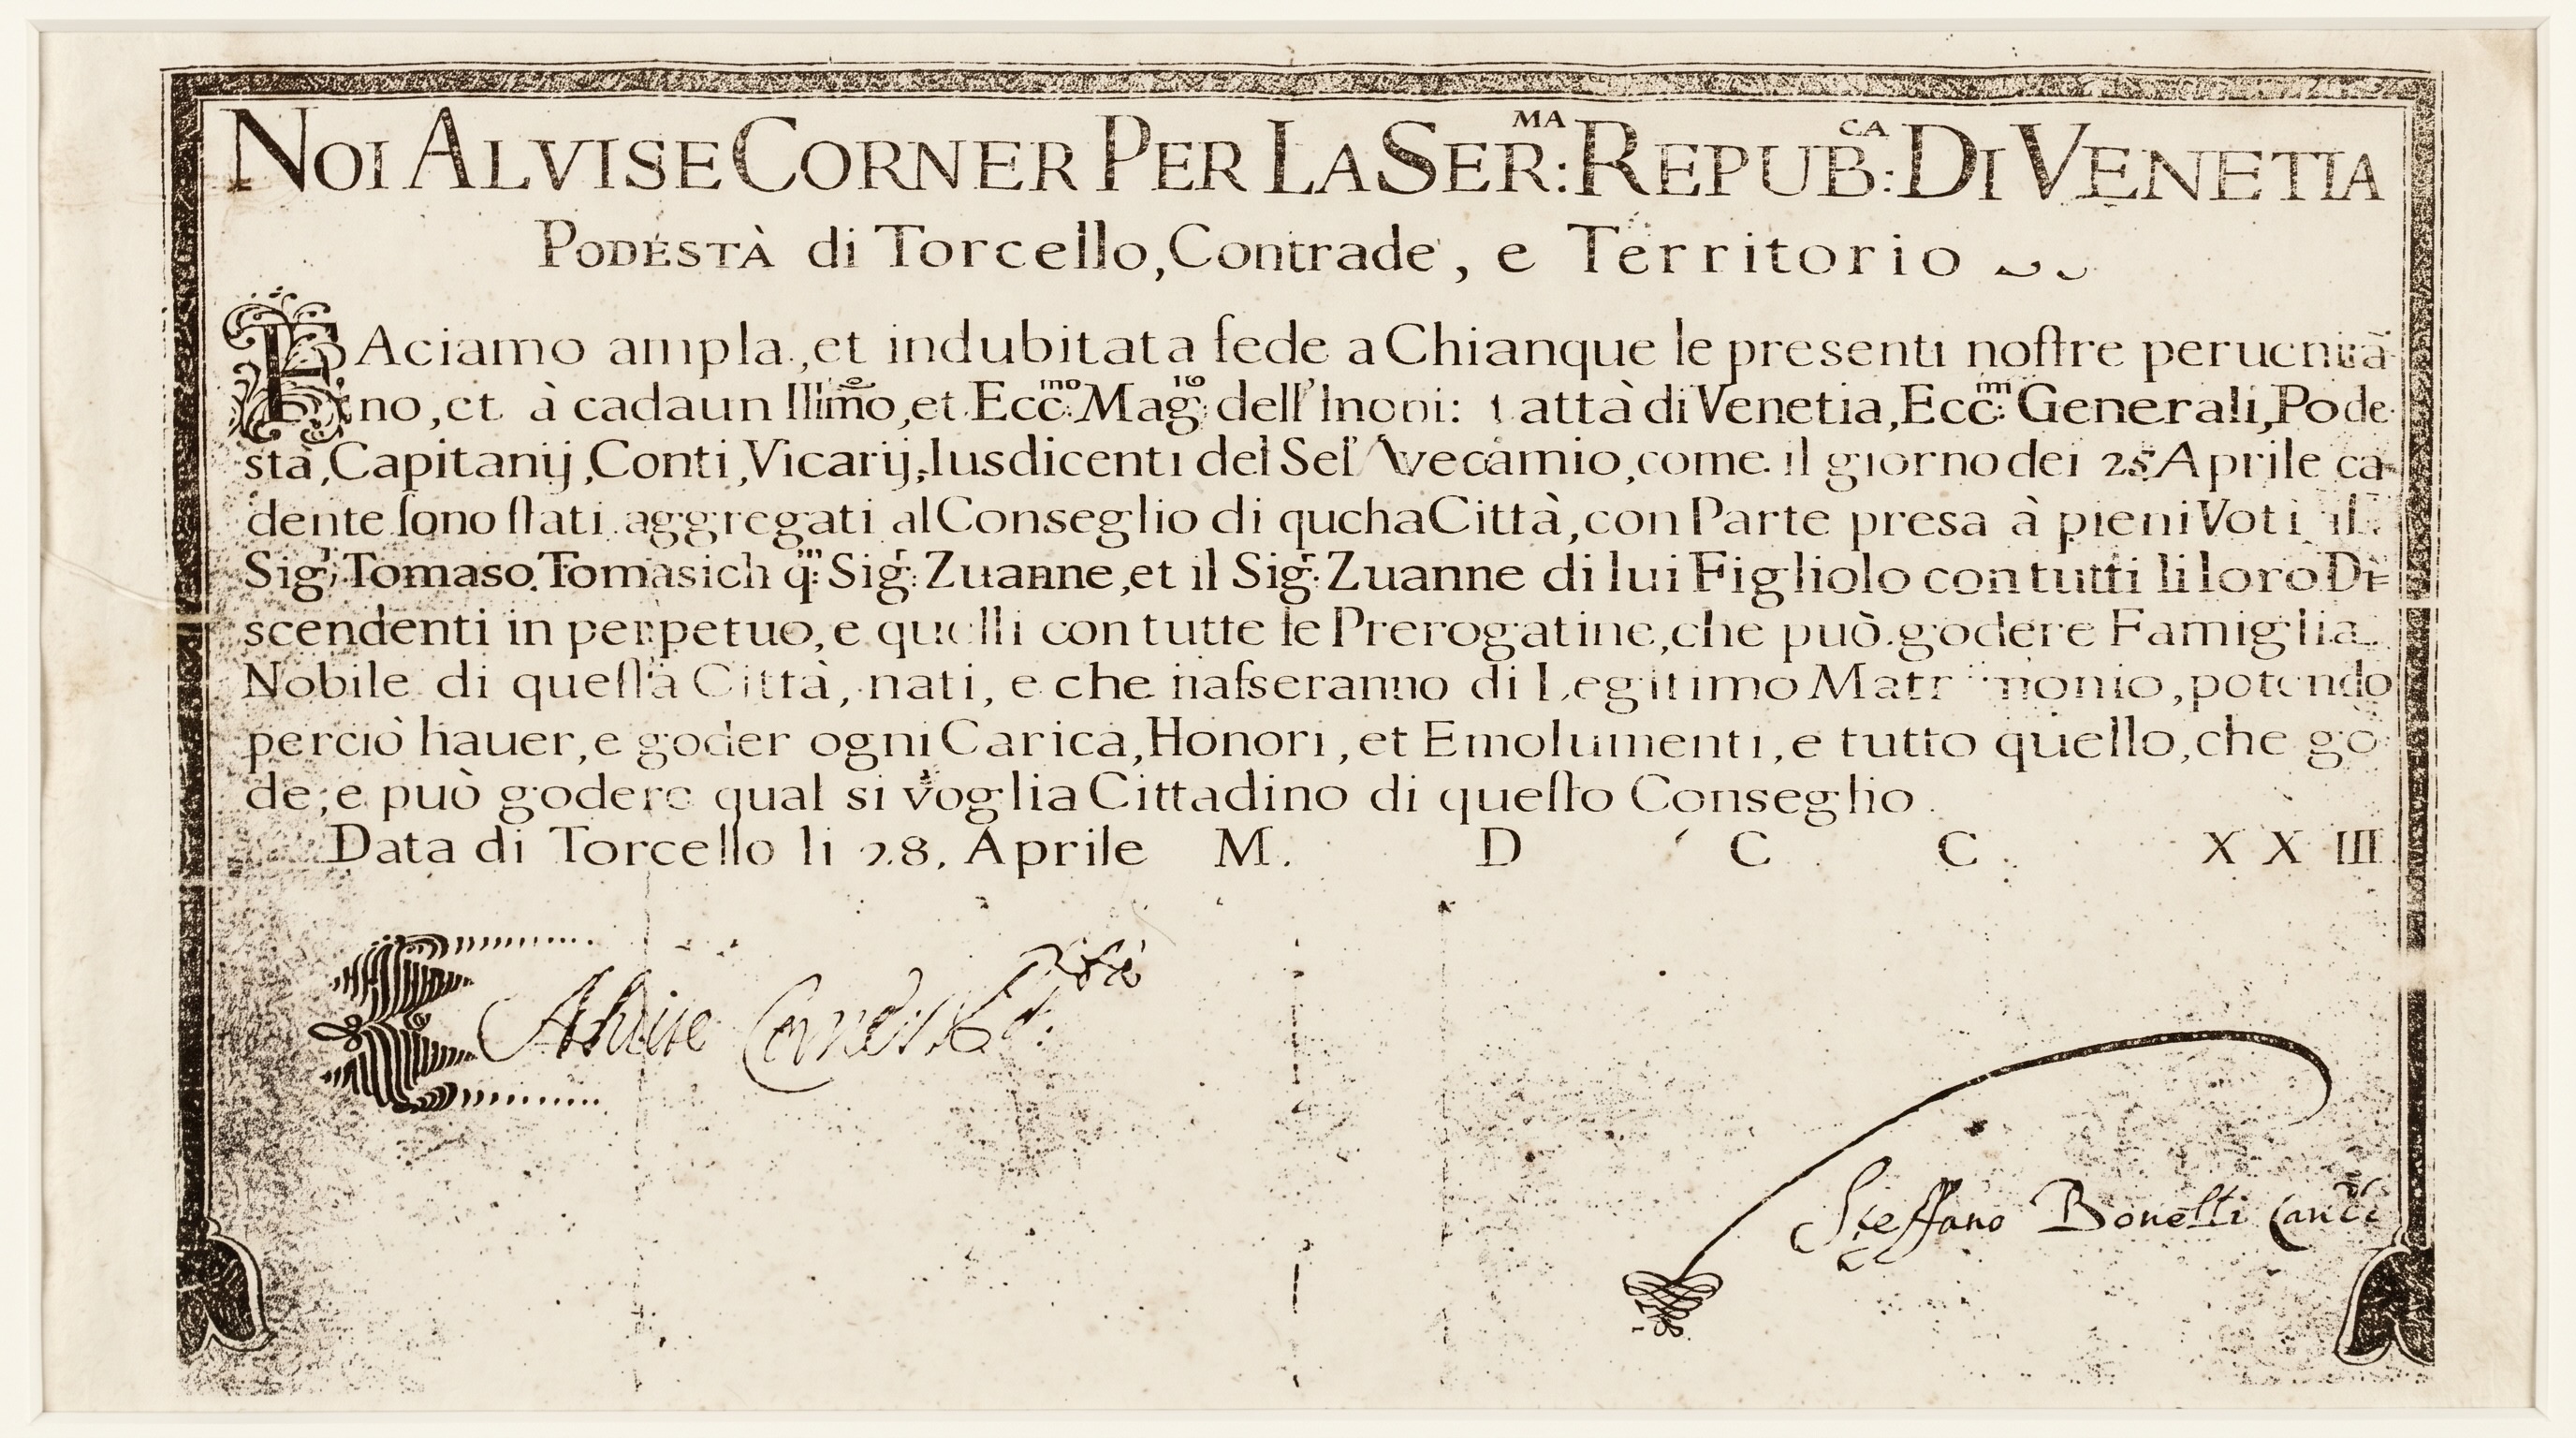 NOI ALVISE CORNER PER LA SER:MA REPUB:CA DI VENETIA
PODESTÀ di Torcello, Contrade, e Territorio
FAciamo ampla, et indubitata fede a Chianque le presenti noſtre
no, et à cadaun Illmo, et Ecc:mo Mag:to dell' di Venetia, Ecc:mi Generali, Pode
stà, Capitanij, Conti, Vicarij, Iusdicenti del, come il giorno dei 25 Aprile ca-
dente ſono ſtati aggregati al Conseglio di Città, con Parte presa à pieni Voti il
Sig:r Tomaso Tomasich q:m Sig:r Zuanne, et il Sig:r Zuanne di lui Figliolo con tutti li loro Di=
scendenti in perpetuo, e quelli con tutte le Prerogatiue, che può godere Famiglia
Nobile di queſta Città, nati, e che naſseranno di Legitimo Matrimonio, potendo
perciò hauer, e goder ogni Carica, Honori, et Emolumenti, e tutto quello, che go
de, e può godere qual si voglia Cittadino di queſto Conseglio.
Data di Torcello li 28. Aprile M. D C C. XXIII
Alvise Corner Pod:
Steffano Bonelli Canc